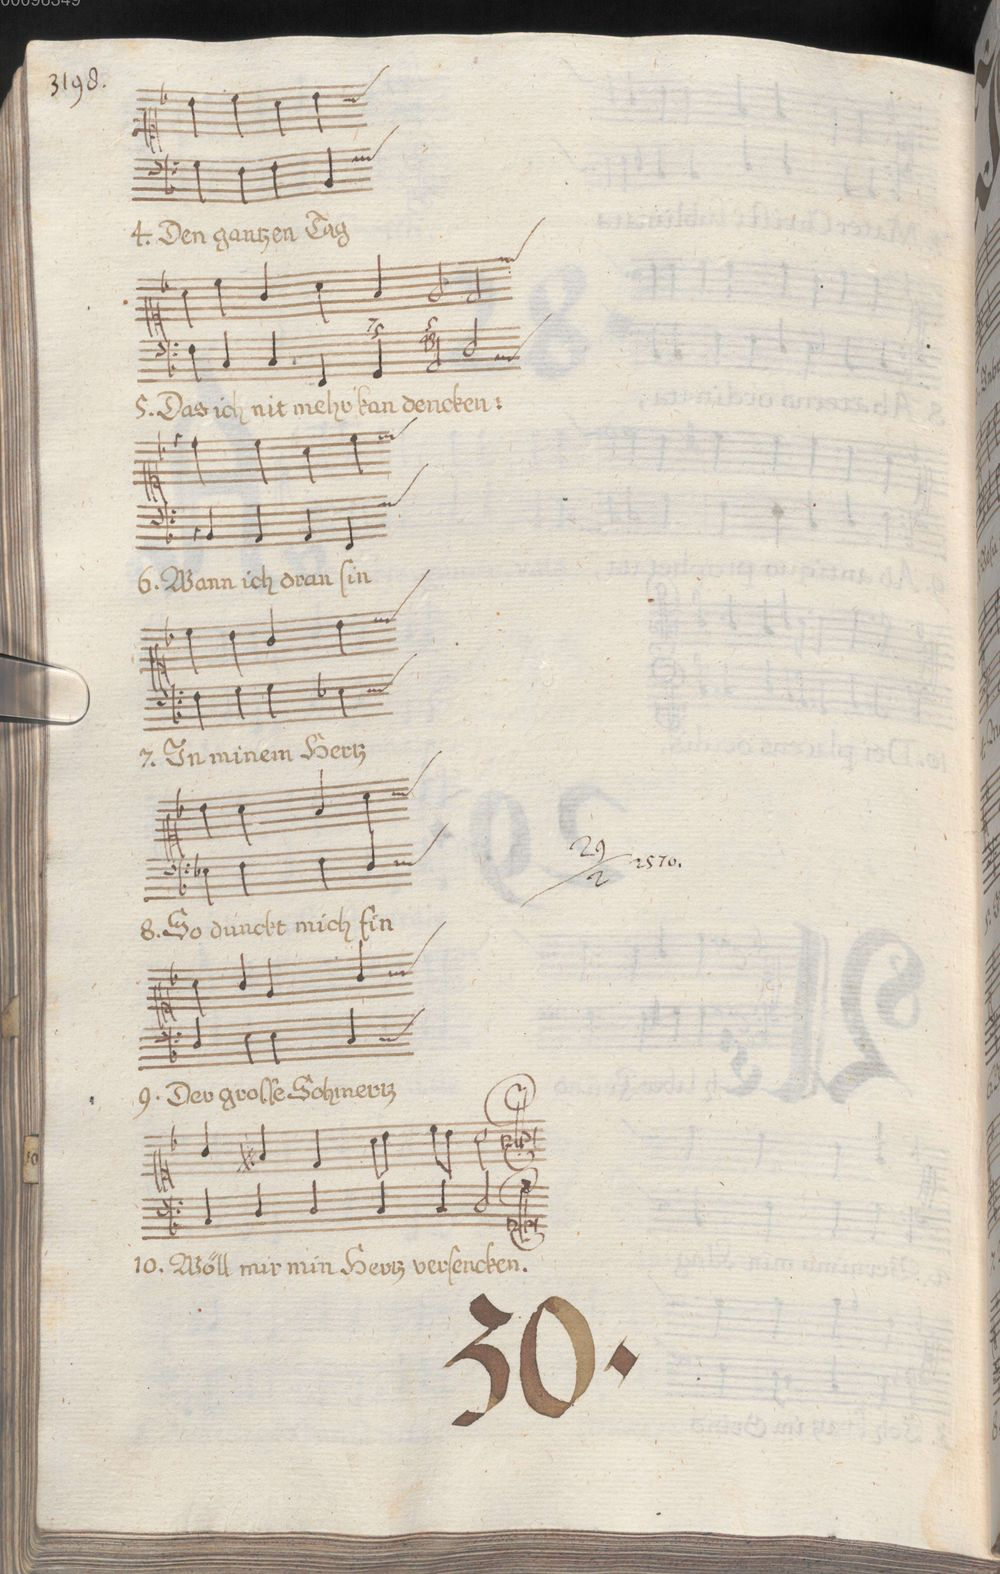 3198.
4. Den gantzen Tag
5. Das ich nit mehr kan dencken:
6. Wann ich dran sin
7. In minem Hertz
29/2 2570.
8. So dunckt mich sin
9. Der grosse Schmertz
10. Wöll mir min Hertz versencken.
30.